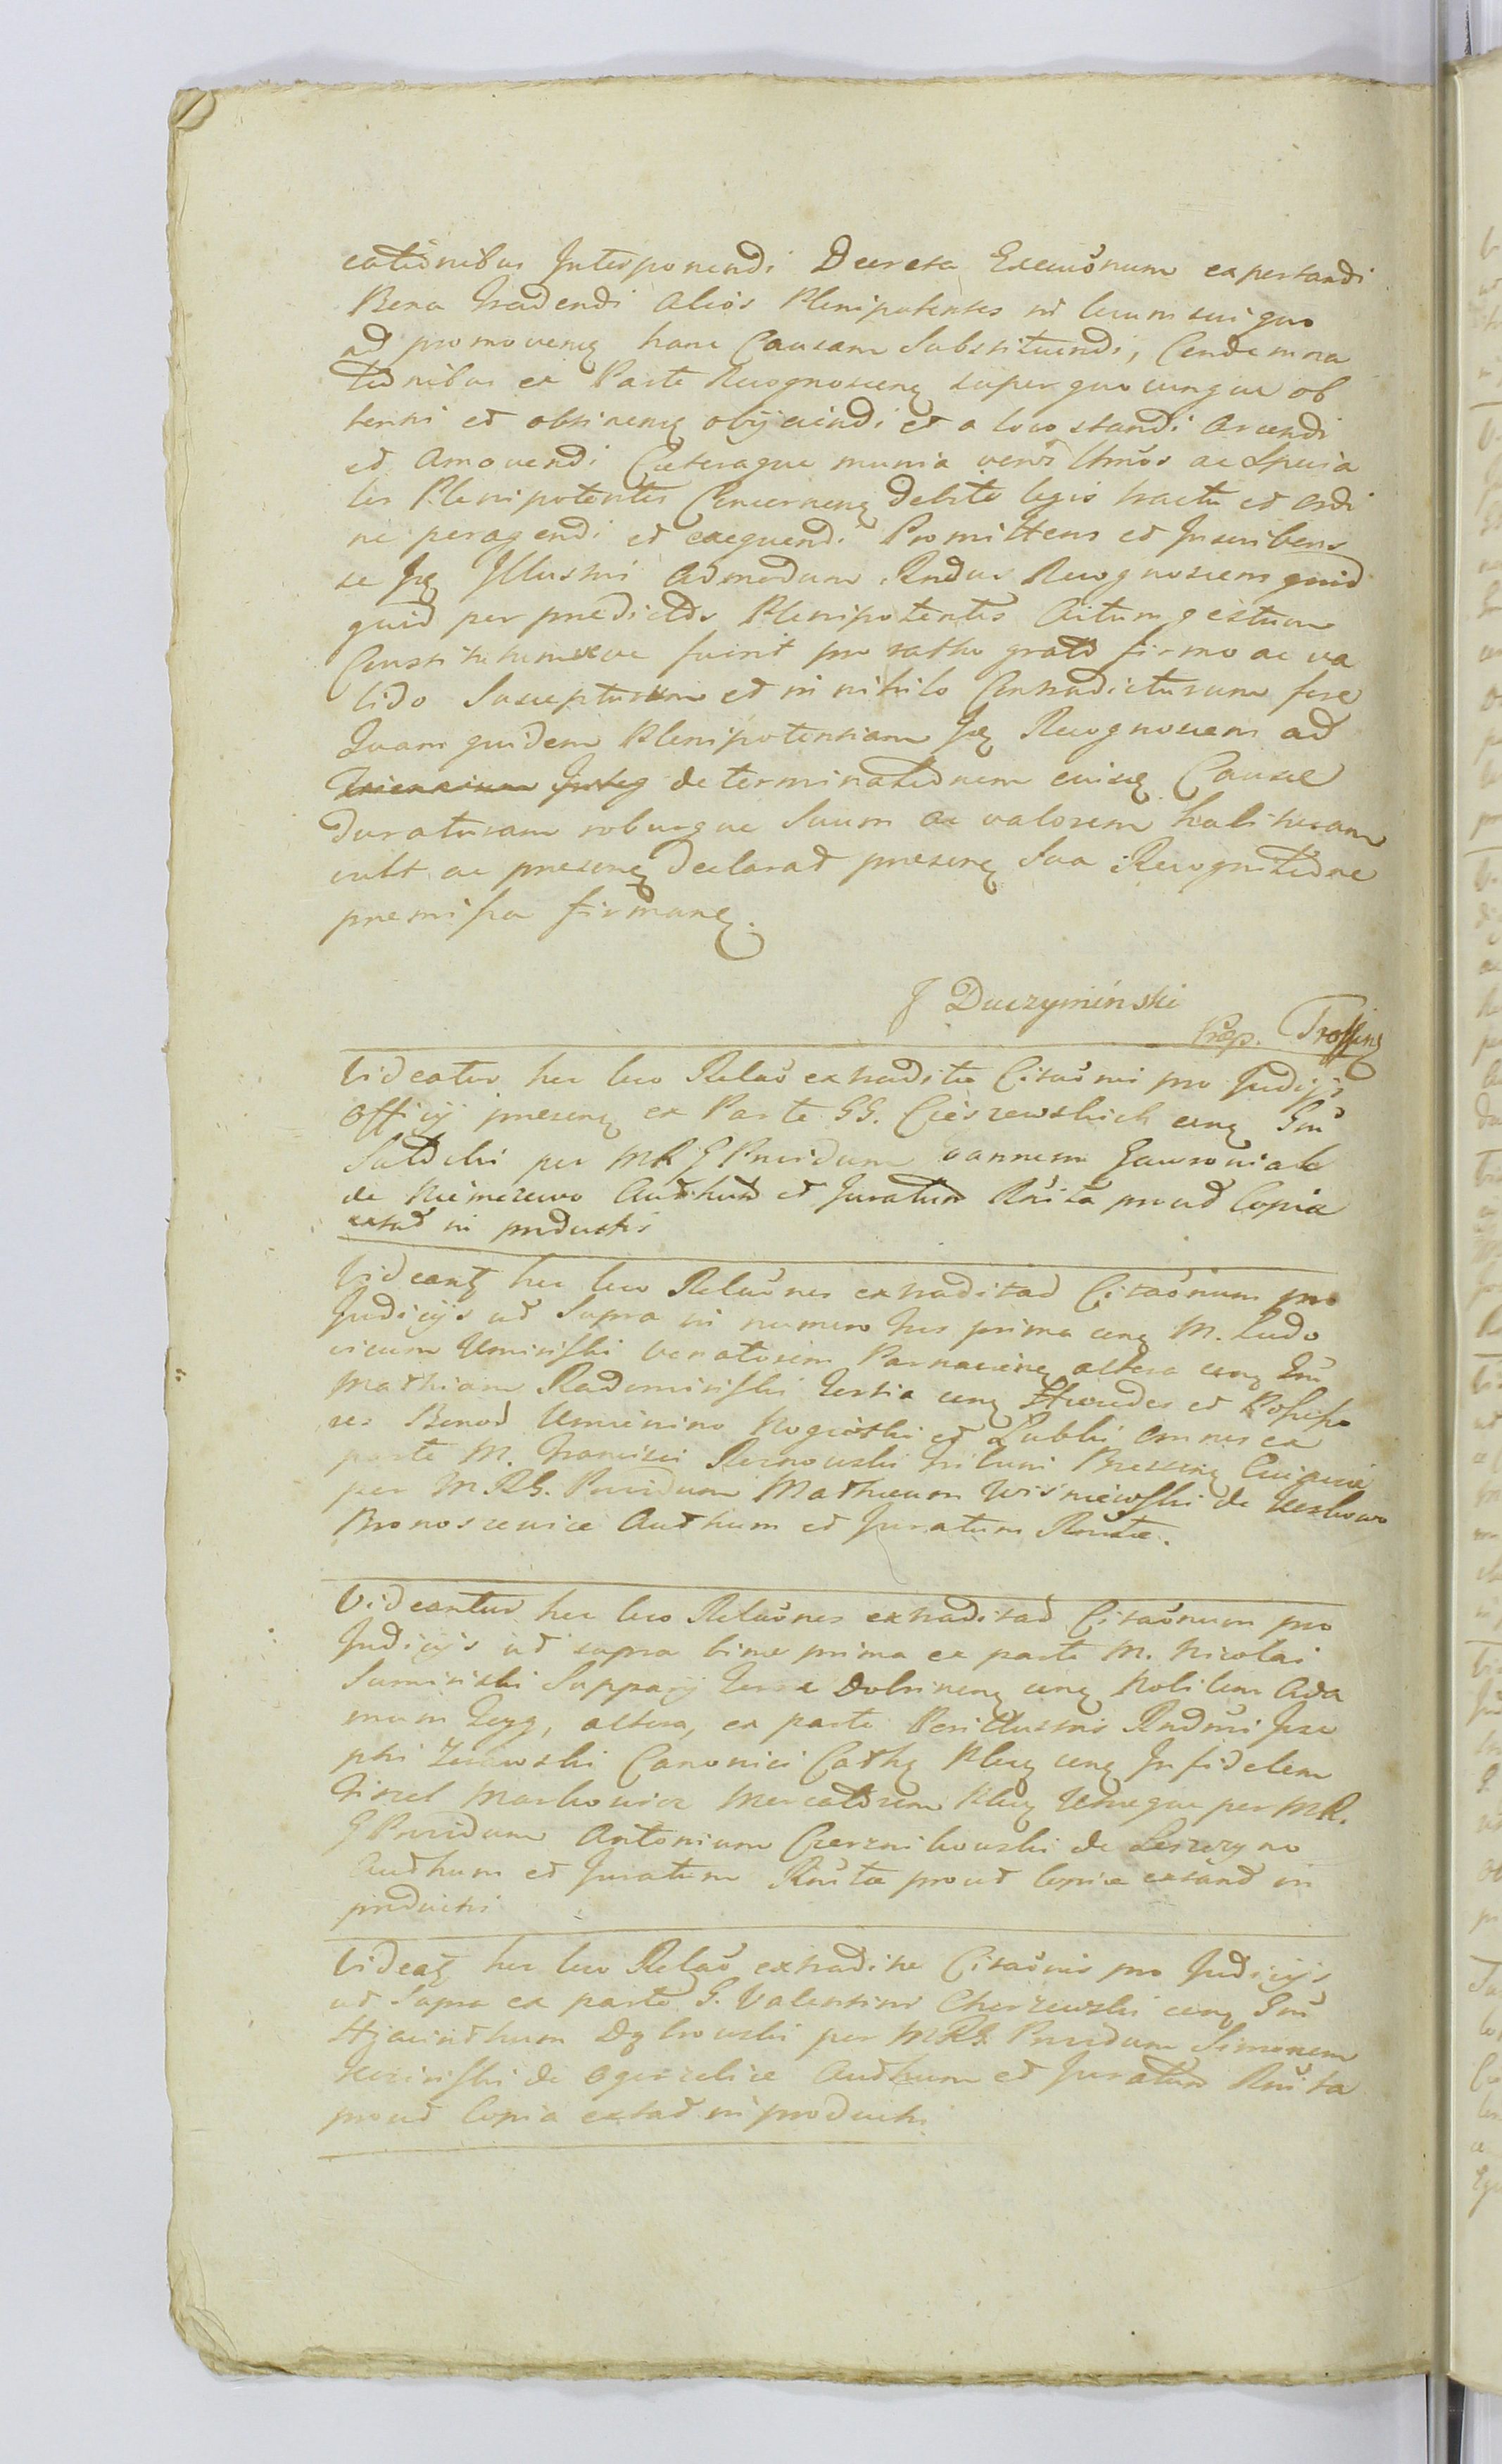 cationibus Interponendi Decreta Execuōnum expertandi
Bona tradendi alios Plenipotentes in locum sui quo
ad promovenq hanc Causam Substituendi, Condemna
tionibus ex Parte Recognoscenq super quocunque ob
tenti et obtinenq obijciendi et a loco standi Arcendi
et Amovendi Caeteraque munia veros ac Specia
les Plenipotentes Concernenq debito legis tractu et ordi
ne peragendi et exequendi Promittens et Inscribens
se Illustri Admodum Rndus Recognoscens quid
quid per praedictos Plenipotentes Actum gestum
Constitutumve fuerit pro ratho grato firmo ac va
lido Suscepturum et in nihilo Contradicturum fore
Quam quidem Plenipotentiam Recognoscens ad
determinationem Causae
Duraturam roburque Suum ac valorem habituram
vult ac praesenq declarat praesenq Sua Recognitione
praemissa firmanq.
J Duczyminski
Praep.
Videatur hic loco Relaō extraditae Citaōnis pro Judicijs
Officij praesenq ex Parte GG. Cieszewskich cenq Gnū
per MR G Providum Joannem Gawroniak
de Niemczewo Authum et Juratum Rnita prout Copia
extat in productis
Videantq hic loco Relaōnes extraditad Citaōnum pro
Judicijs ut Supra in numero tres prima cenq M. Ludo
vicum Uminsski Venatorem Parnavienq altera cenq Gnū
Mathiam Radominsski tertia cenq Haeredes et Possesso
res Bonod Umienino et Lubki omnes ex
parte M. Francisci tribuni Brzescenq Cujaviae
per M.RG. Providum Mathaeum Wisniewsski de
Bronoszewice Authum et Juratum Rnitae.
Videantur hic loco Relaōnes extraditad Citaōnum pro
Judicijs ut supra binae prima ex parte M. Nicolai
Suminski Dapparij Terrae Dobrinenq cenq Nobilem Ada
mum Zeyg, altera, ex parte Perillustris Rndmi Jose
phi Canonici Cathq Plocq cenq Infidelem
Fiszel Markowicz Mercatorem Plocq Utraque per MR.
G Providum Antonium Czernikowski de Leszczyno
Authum et Juratum Rnitae prout Copiae extant in
productis
Videatq hic loco Relaō extraditae Citaōnis pro Judicijs
ut Supra ex parte G. Valentini Chorzewski cenq Gnū
Hyacinthum Dąbrowski per MRG. Providum Simonem
de Ogorzelice Authum et Juratum Rnita
prout Copia extat in productis